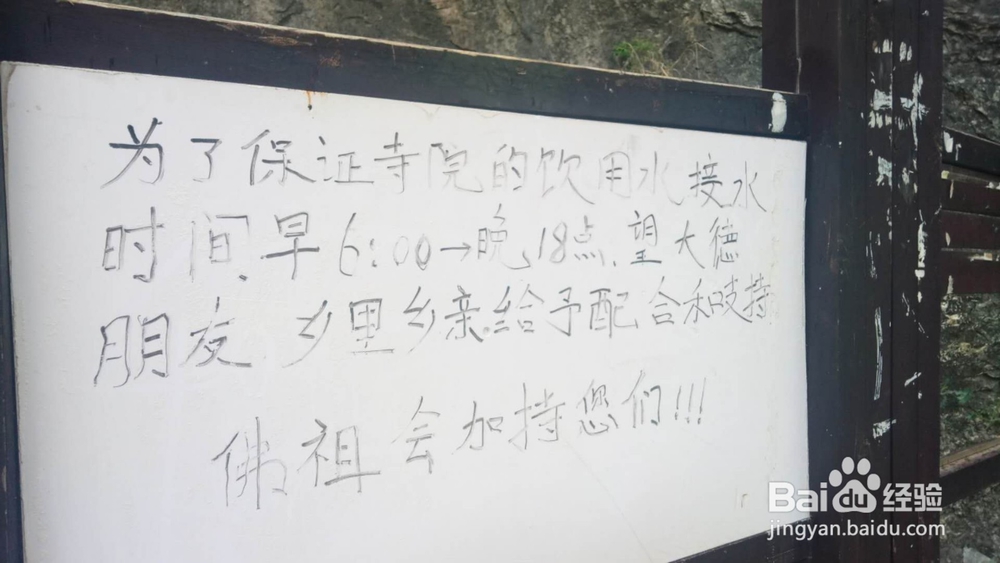 为了保证寺院的饮用水接水
时间,早6:00→晚18点,望大德
朋友,乡里乡亲给予配合和吱持
佛祖会加持您们!!!
Baidu经验
jingyan.baidu.com